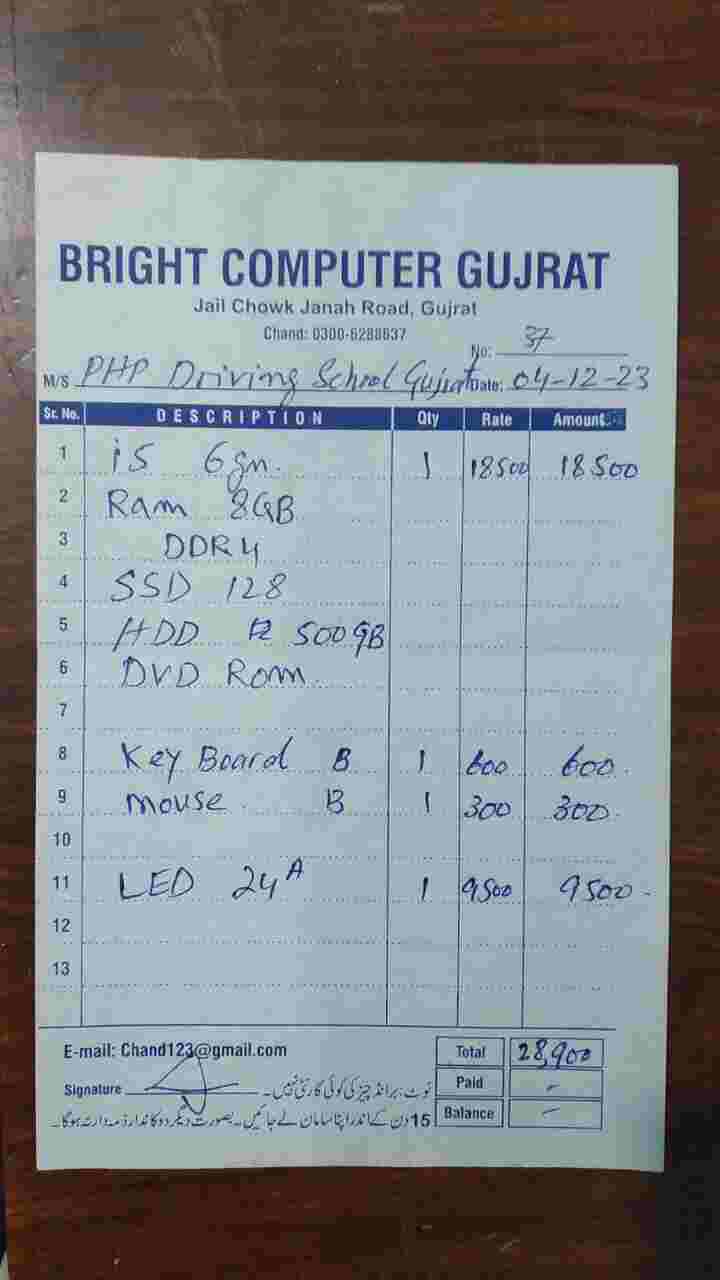 BRIGHT COMPUTER GUJRAT
Jail Chowk Janah Road, Gujrat
Chand: 0300-6288637
No: 37
M/S PHP Driving School Gujrat Date: 04-12-23
Sr. No. DESCRIPTION Qty Rate Amount
1 i5 6gn. 1 18500 18500
2 Ram 8GB
3 DDR4
4 SSD 128
5 HDD 500GB
6 DVD Rom
7
8 Key Board B 1 600 600
9 mouse B 1 300 300
10
11 LED 24A 1 9500 9500
12
13
E-mail: Chand123@gmail.com Total 28,900
Signature نوٹ: برانڈ چیز کی کوئی گارنٹی نہیں۔ Paid -
15 دن کے اندر اپنا سامان لے جائیں۔ بصورت دیگر دوکاندار ذمہ دار نہ ہوگا۔ Balance -